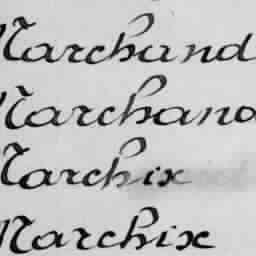 Marchand
Marchand
Marchix
Marchix